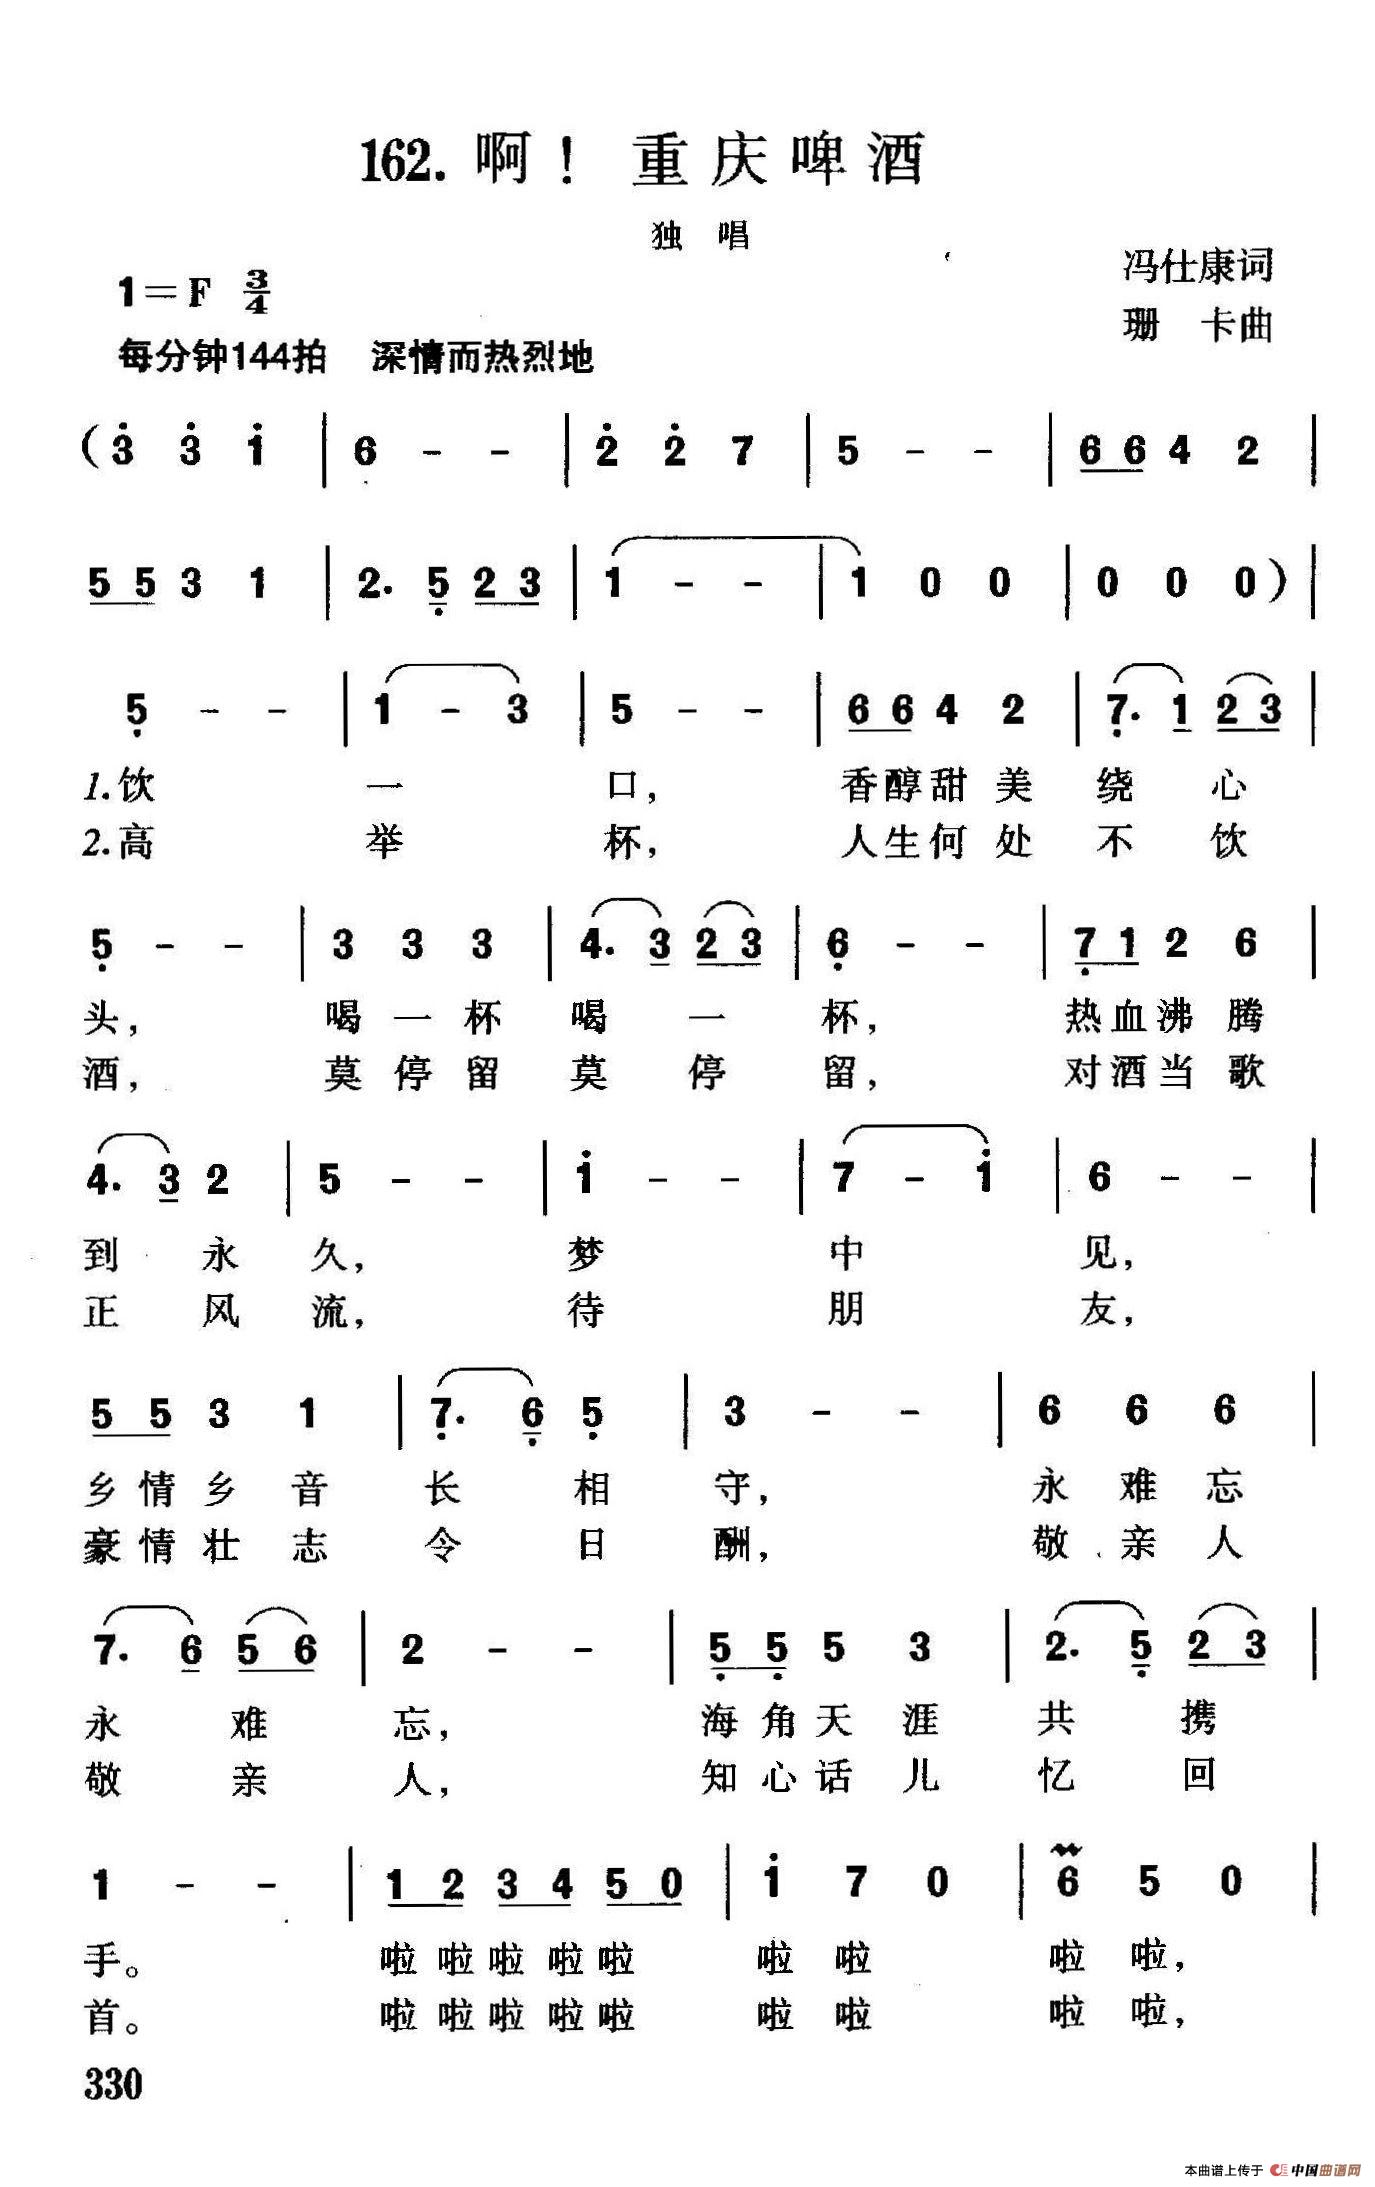 162. 啊！ 重庆啤酒
独 唱
冯仕康词
1=F 3/4
珊 卡曲
每分钟144拍 深情而热烈地
( 3̇ 3̇ 1̇ | 6 - - | 2̇ 2̇ 7 | 5 - - | 6 6 4 2 |
5 5 3 1 | 2. 5̣ 2 3 | 1 - - | 1 0 0 | 0 0 0 ) |
5̣ - - | 1 - 3 | 5 - - | 6 6 4 2 | 7̣. 1 2 3 |
1.饮 一 口, 香醇甜 美 绕 心
2.高 举 杯, 人生何 处 不 饮
5̣ - - | 3 3 3 | 4. 3 2 3 | 6̣ - - | 7̣ 1 2 6 |
头, 喝 一 杯 喝 一 杯, 热血沸 腾
酒, 莫 停 留 莫 停 留, 对酒当 歌
4. 3 2 | 5 - - | 1̇ - - | 7 - 1̇ | 6 - - |
到 永 久, 梦 中 见,
正 风 流, 待 朋 友,
5 5 3 1 | 7̣. 6̣ 5̣ | 3 - - | 6 6 6 |
乡 情 乡 音 长 相 守, 永 难 忘
豪 情 壮 志 令 日 酬, 敬 亲 人
7. 6 5 6 | 2 - - | 5̣ 5̣ 5 3 | 2. 5̣ 2 3 |
永 难 忘, 海 角 天 涯 共 携
敬 亲 人, 知 心 话 儿 忆 回
1 - - | 1 2 3 4 5 0 | 1̇ 7 0 | 6 5 0 |
手。 啦 啦 啦 啦 啦 啦 啦 啦 啦,
首。 啦 啦 啦 啦 啦 啦 啦 啦 啦,
330
本曲谱上传于 中国曲谱网